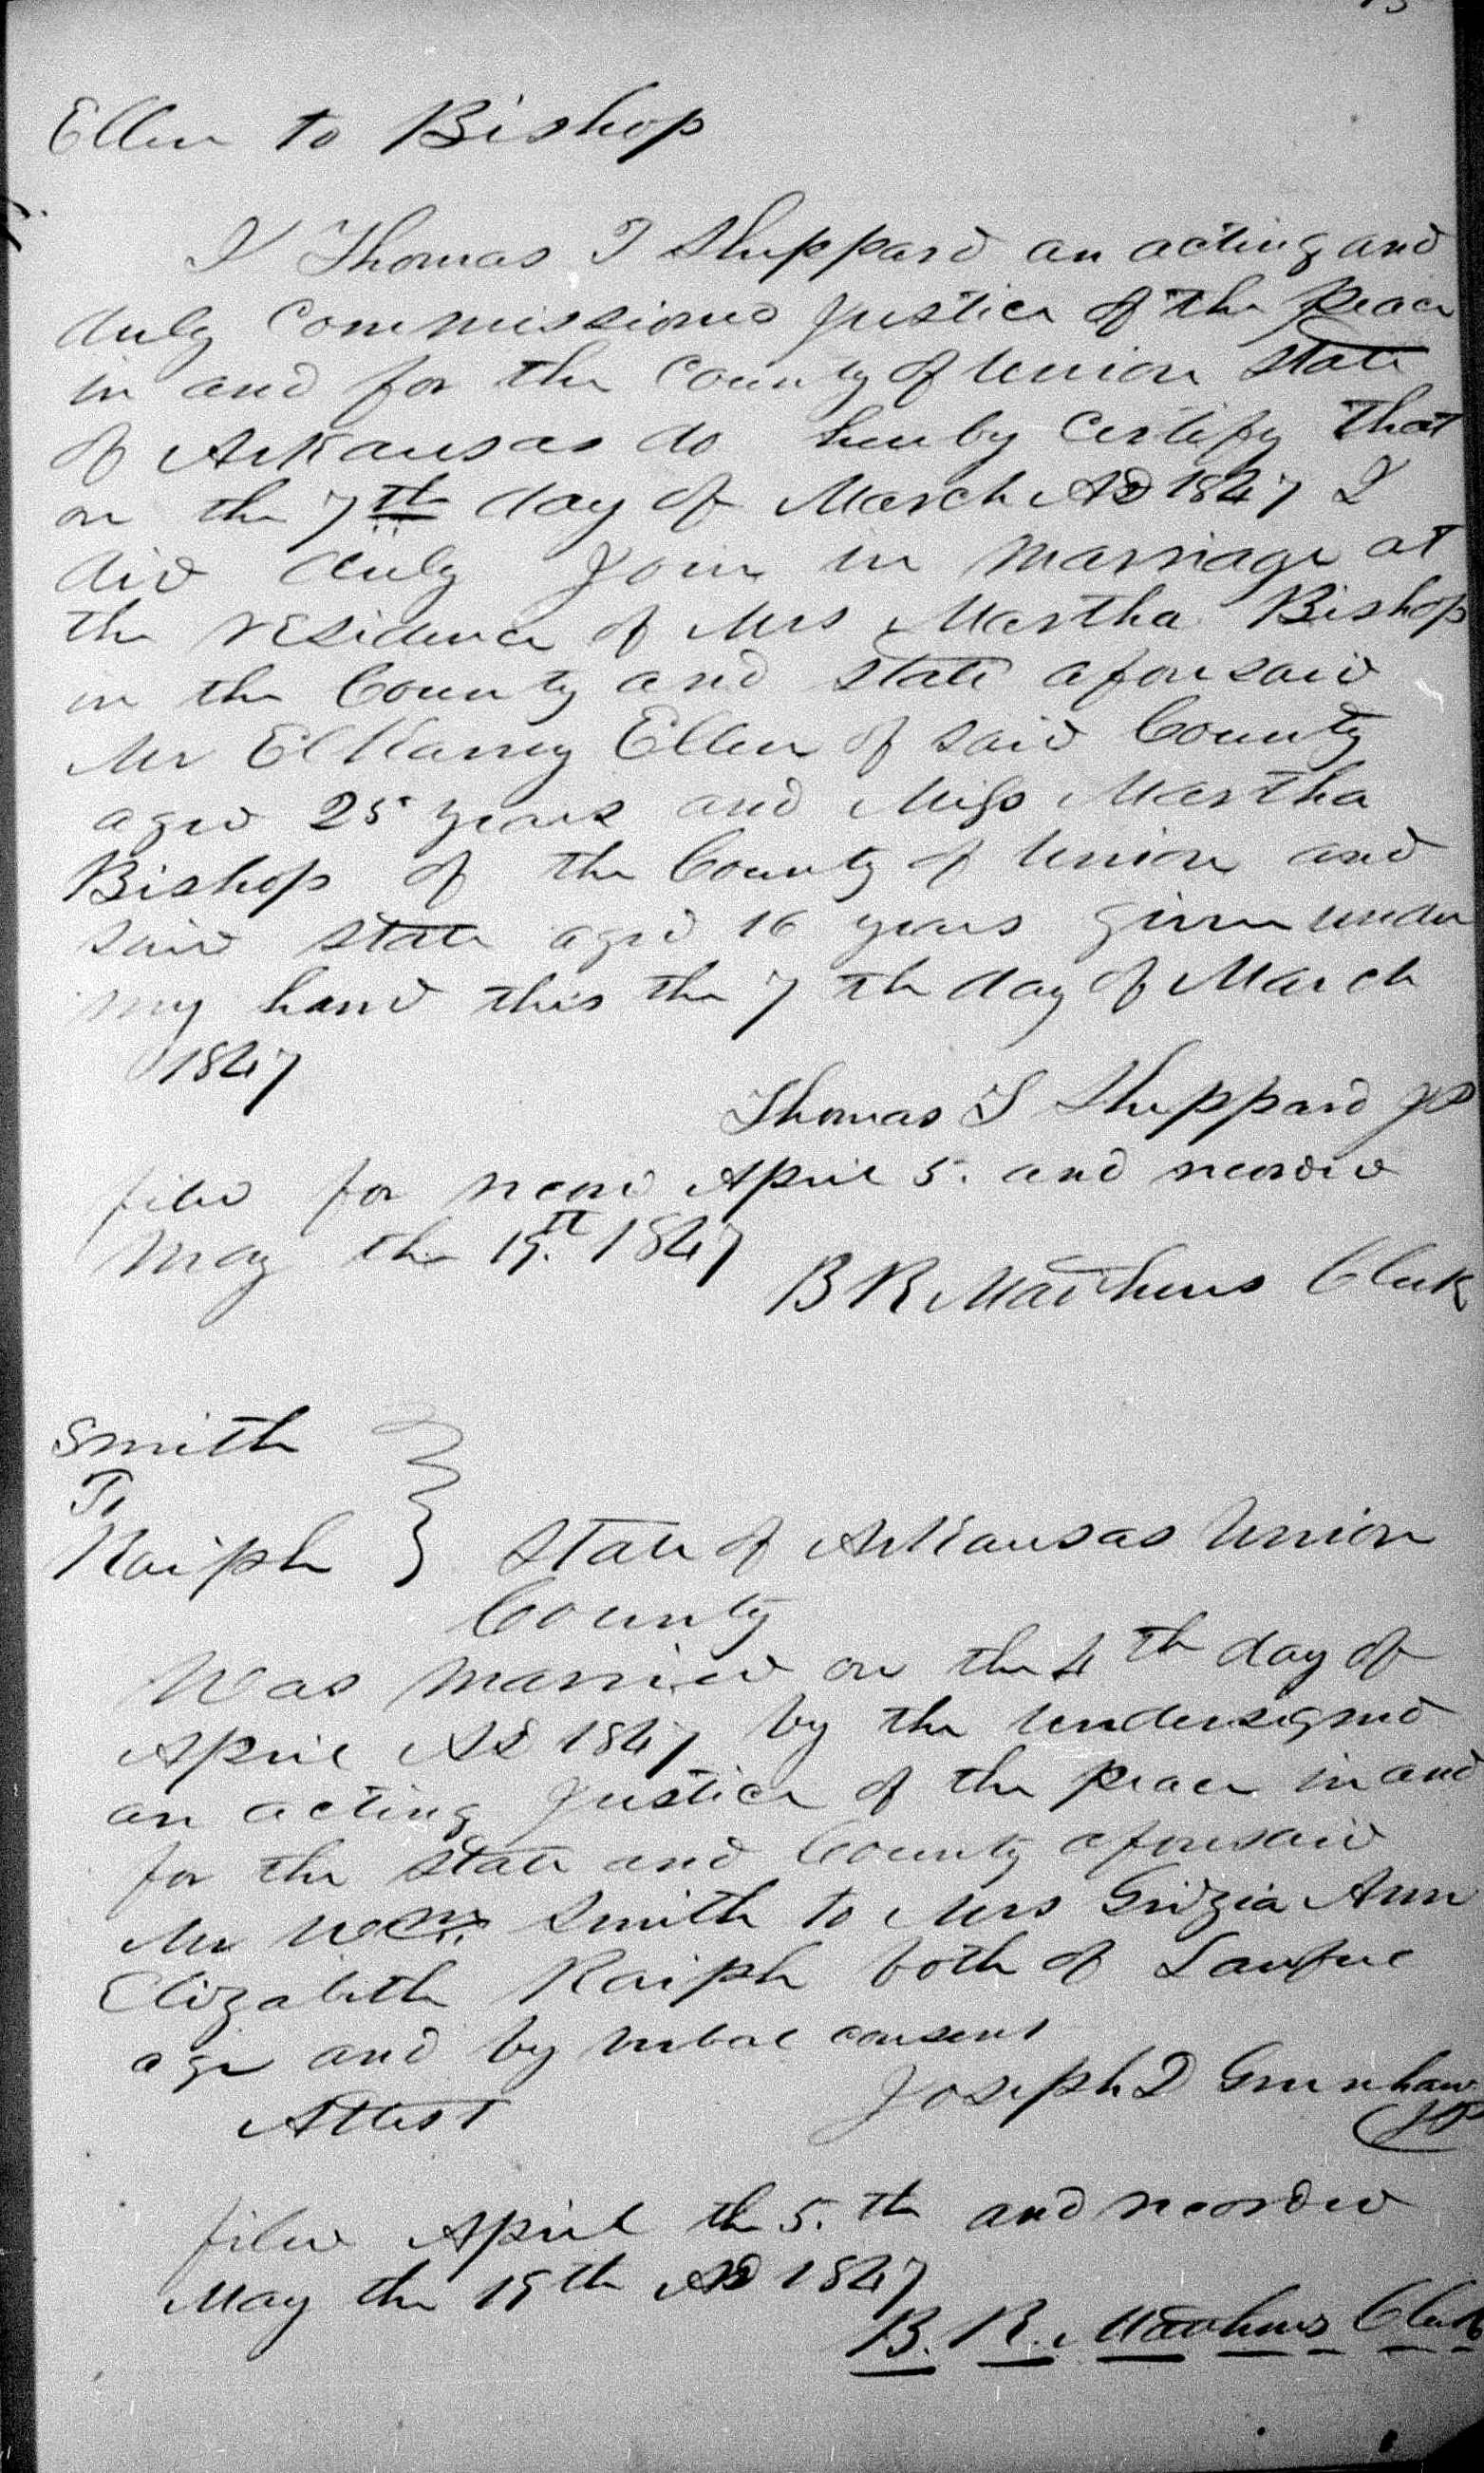 Ellen to Bishop
I Thomas T Sheppard an acting and
duly Commissioned Justice of the Peace
in and for the County of Union State
of Arkansas do hereby Certify that
on the 7th day of March AD 1847 I
did duly Join in Marriage at
the residence of Mrs Martha Bishop
in the County and State aforesaid
Mr Elkaney Ellen of said County
aged 25 years and Miss Martha
Bishop of the County of Union and
said State aged 16 years given under
my hand this the 7th day of March
1847
Thomas T Sheppard JP
filed for record April 5. and recorded
May the 19th 1847
B R Matthews Clerk
Smith
To
Raiph
State of Arkansas Union
County
Was Married on the 4th day of
April AD 1847 by the Undersigned
an acting Justice of the peace in and
for the State and County aforesaid
Mr Wm Smith to Mrs Grizia Ann
Elizabeth Raiph both of Lawful
age and by verbal consent
Joseph D Greenhaw
Attest
JP
filed April the 5.th and recorded
May the 19th AD 1847
B. R. Matthews Clerk